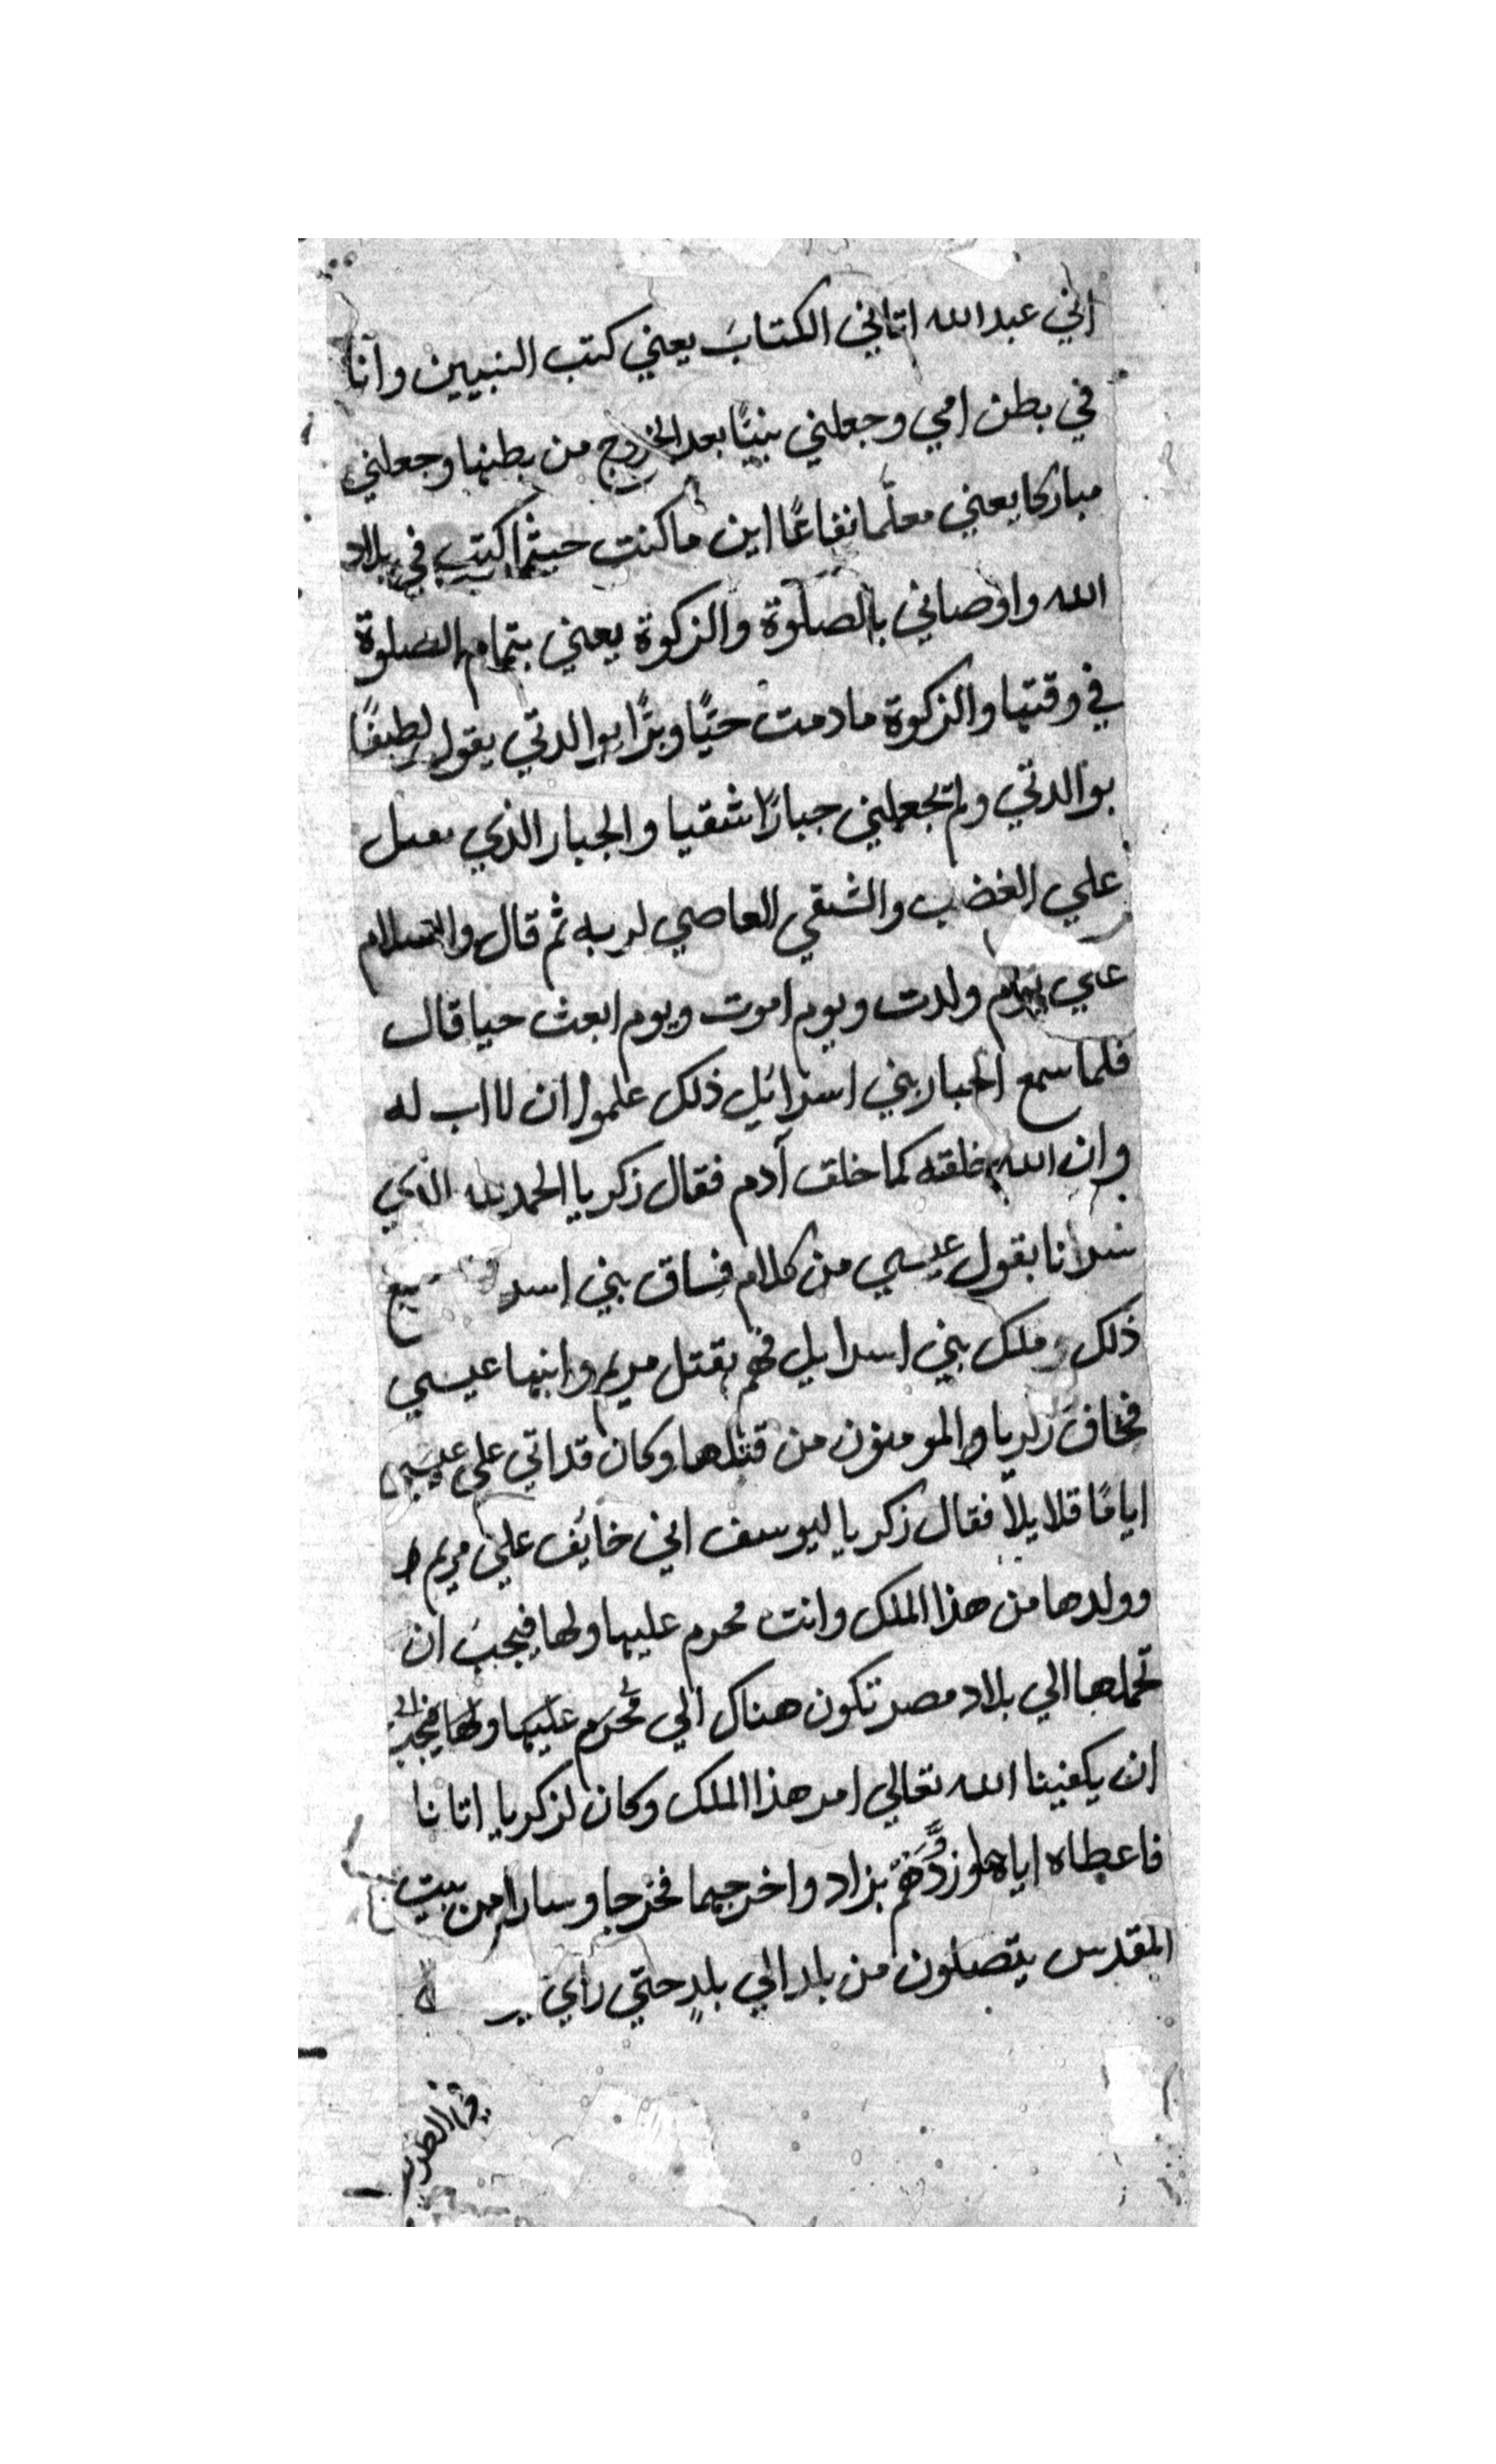 اني عبد الله اتاني الكتابَ يعني كتب النبيين وانا
في بطن امي وجعلني نبيًا بعد الخروج من بطنها وجعلني
مباركا يعني معلّما نفاعًا اين ما كنت حيثما كنت في بلاد
الله واوصاني بالصلوة والزكوة يعني بتمام الصلوة
في وقتها والزكوة ما دمت حيًّا وبرًّا بوالدتي يقول لطيفًا
بوالدتي ولم يجعلني جبارًا شقيا والجبار الذي
علي الغضب والشقي العاصي لربه ثم قال والسلام
علي يوم ولدت ويوم اموت ويوم ابعث حيا قال
فلما سمع احبار بني اسرائيل ذلك علموا ان لا اب له
وان الله خلقه كما خلق آدم فقال زكريا الحمد لله الذي
بقول عيسي من كلام فساق بني
ذلك وملك بني اسرايل فهم بقتل مريم وابنها عيسي
فخاف زكريا والمومنون من قتلها وكان قد اتي علي عيسي
ايامًا قلايلاً فقال زكريا ليوسف اني خائف علي مريم
وولدها من هذا الملك وانت محرم عليها ولها فيجب ان
تحملها الي بلاد مصر تكون هناك الي محرم عليها ولها فيجب الي
ان يكفينا الله تعالي امر هذا الملك وكان لزكريا اتانا
فاعطاه اياها وزوّدهم بزاد واخرجهما فخرجا وسارا من بيت
المقدس يتصلون من بلد الي بلدٍ حتي راي
في الطريق